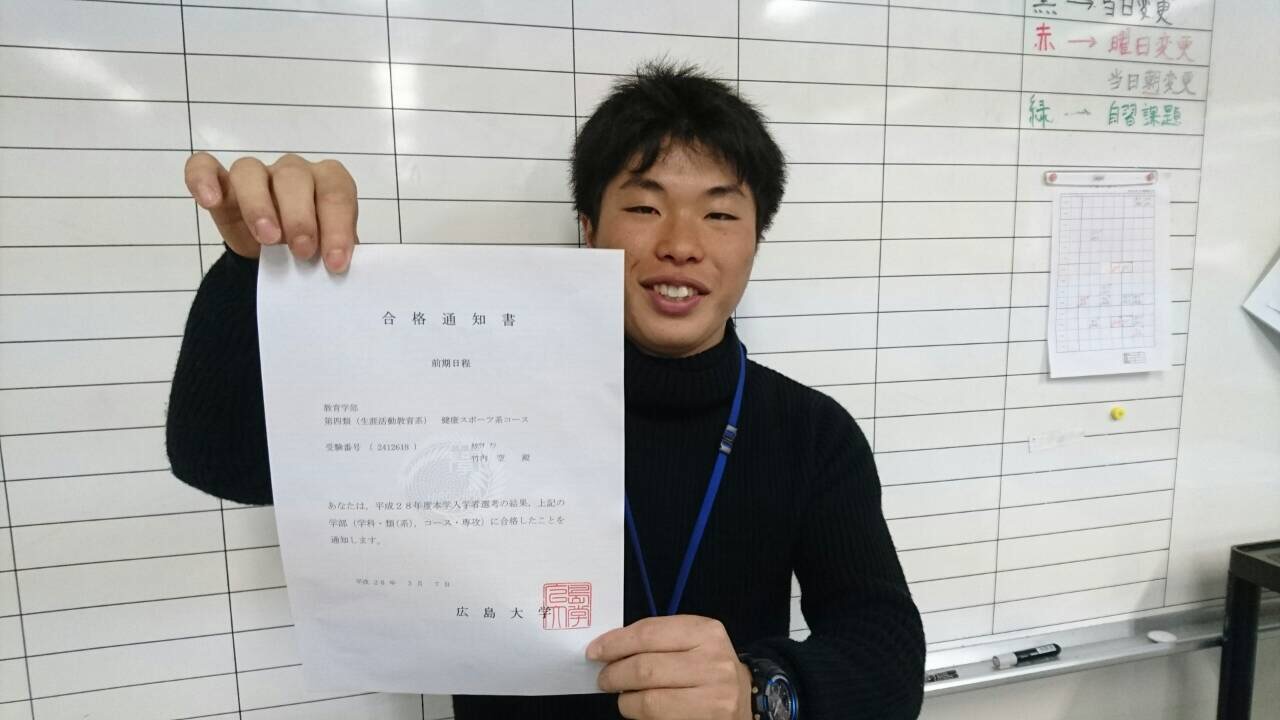 黒 → 当日変更
赤 → 曜日変更
当日朝変更
緑 → 自習課題
合格通知書
前期日程
教育学部
第四類（生涯活動教育系） 健康スポーツ系コース
受験番号 （ 2412618 ）
竹内 空 殿
あなたは、平成２８年度本学入学者選考の結果、上記の
学部（学科・類(系)，コース・専攻）に合格したことを
通知します。
平成２８年 ３月 ７日
広島大学